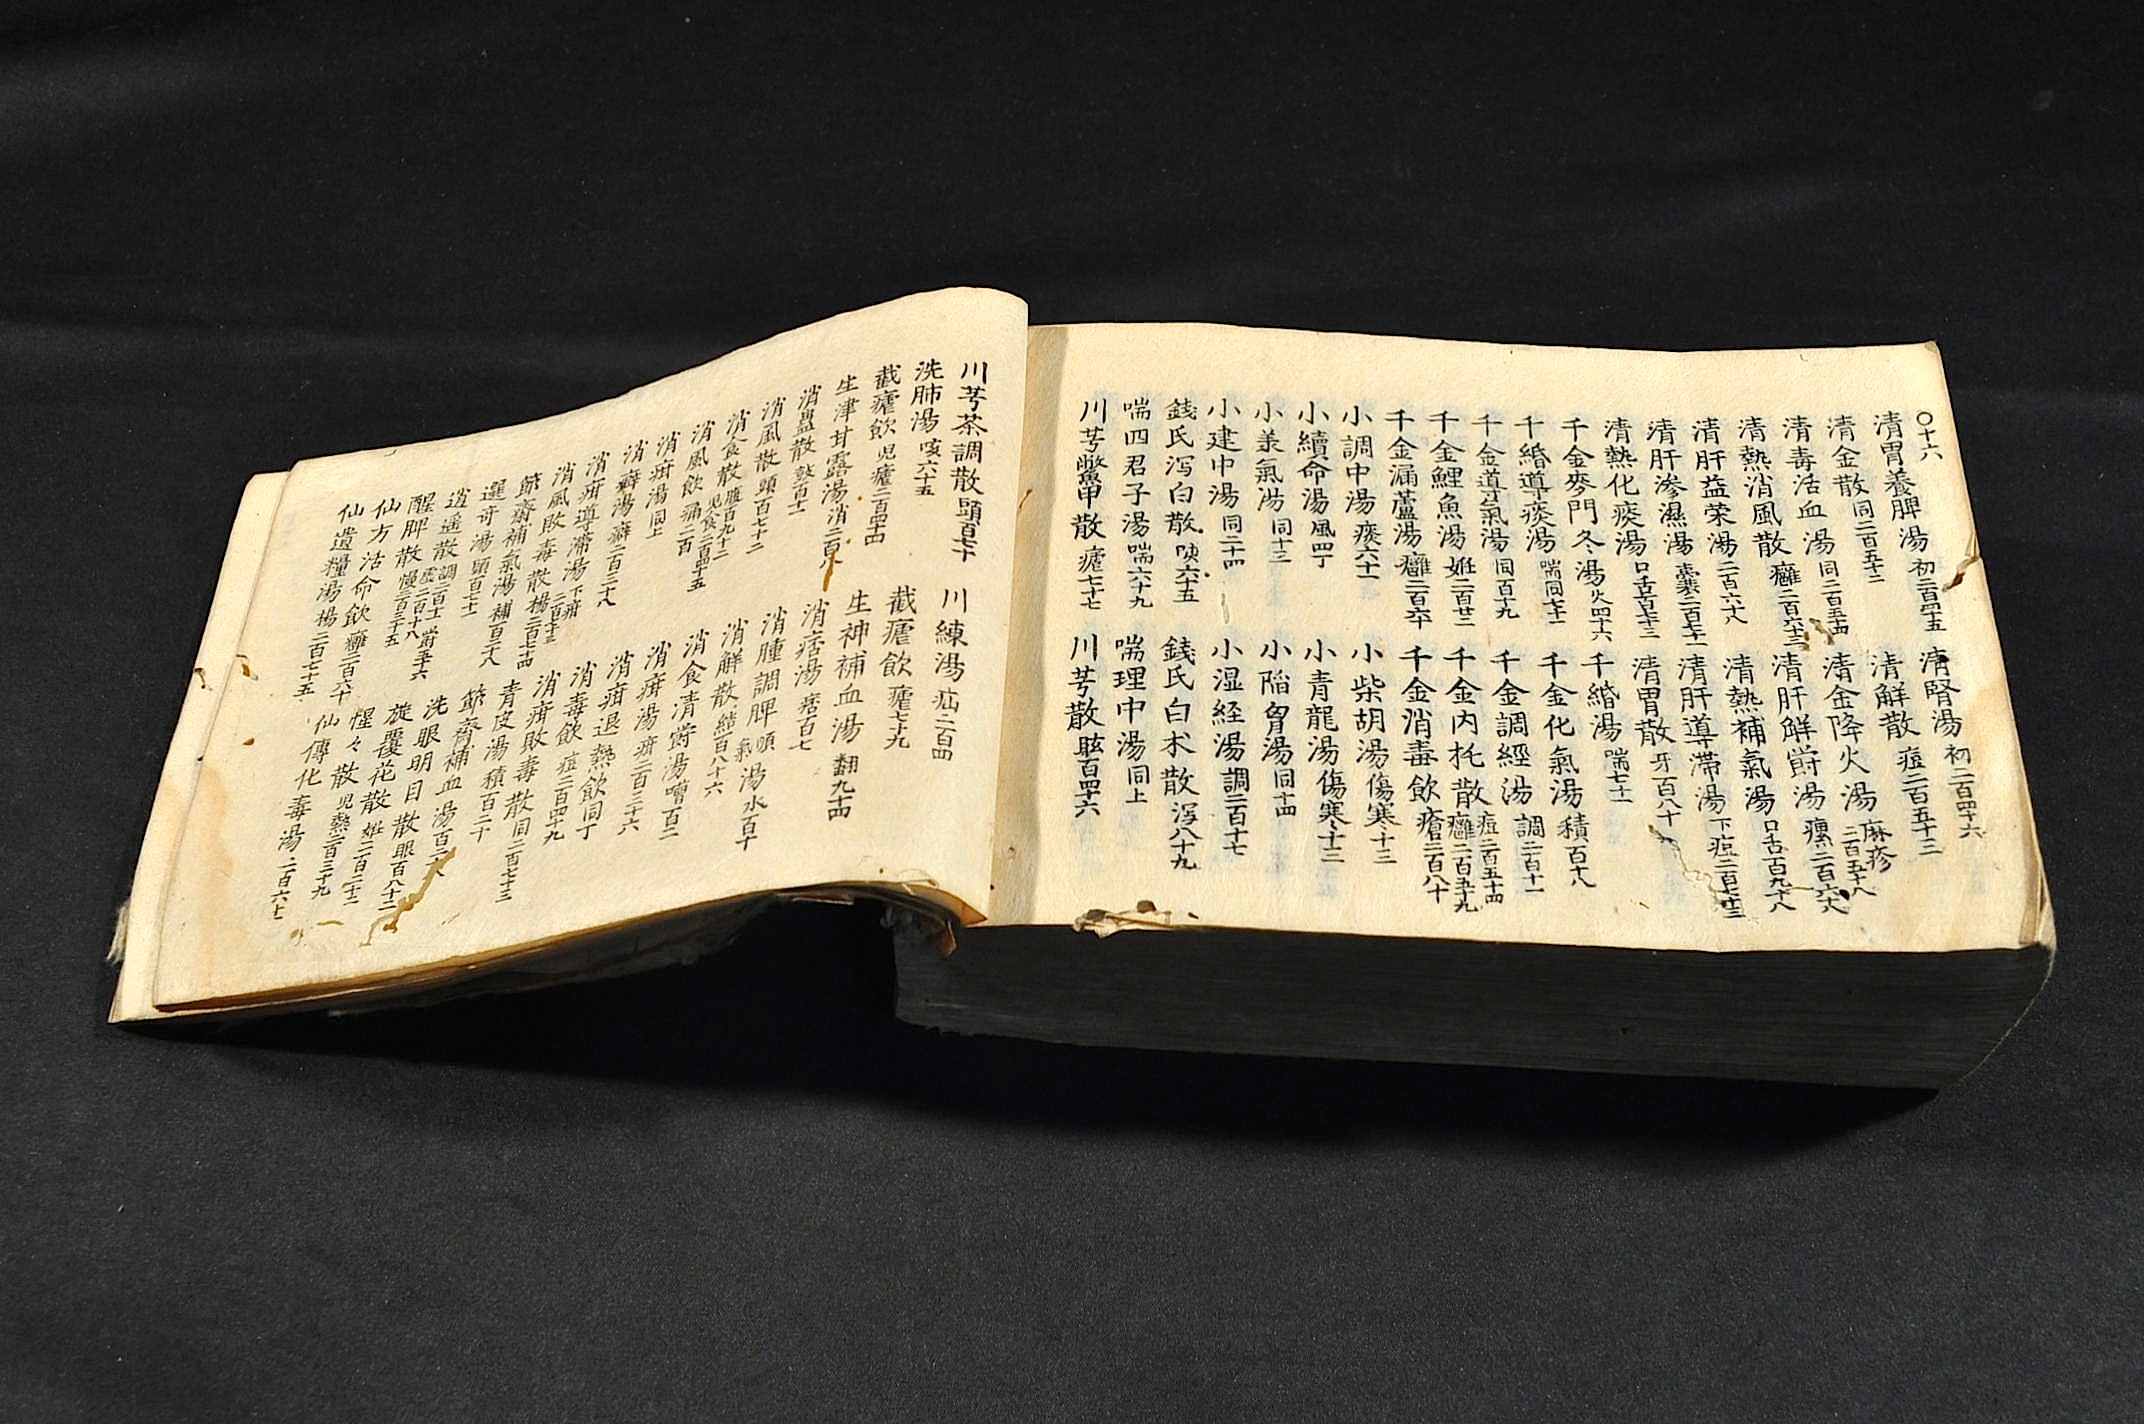 〇十六
清胃養脾湯 初二百四十五
清腎湯 初二百四十六
清金散 同二百五十二
清解散 痘二百五十三
清毒活血湯 同二百五十四
清金降火湯 麻疹二百五十八
清熱消風散 癰二百六十三
清肝解欝湯 瘰二百六十六
清肝益荣湯 二百六十八
清熱補氣湯 口舌百九十八
清肝滲濕湯 囊二百七十一
清肝導滞湯 下疳二百七十三
清熱化痰湯 口舌百七十三
清胃散 牙百八十
千金麥門冬湯 火四十六
千緡湯 喘七十一
千緡導痰湯 喘同七十一
千金化氣湯 積百十八
千金導氣湯 同百十九
千金調經湯 調二百十一
千金鯉魚湯 姙二百廿二
千金内托散 痘二百五十四 癰二百五十九
千金漏蘆湯 癰二百六十
千金消毒飲 瘡二百八十
小調中湯 痰六十一
小柴胡湯 傷寒十三
小續命湯 風四丁
小青龍湯 傷寒十三
小羕氣湯 同十三
小陥胷湯 同十四
小建中湯 同二十四
小湿経湯 調二百十七
錢氏泻白散 咳六十五
錢氏白术散 泻八十九
喘四君子湯 喘六十九
喘理中湯 同上
川芎鱉甲散 瘧七十七
川芎散 眩百四十六
川芎茶調散 頭百七十
川練湯 疝二百四
洗肺湯 咳六十五
截瘧飲 瘧七十九
截瘧飲 児瘧二百四十四
生神補血湯 翻九十四
生津甘露湯 消二百八
消痞湯 痞百七
消蠱散 皷百十一
消腫調脾順氣湯 水百十
消風散 頭百七十二
消解散 結百八十六
消食散 腹百九十二 児食二百四十五
消食清欝湯 嘈百二
消風飲 痛二百
消疳湯 疳二百三十六
消疳湯 同上
消疳退熱飲 同丁
消癖湯 癖二百三十八
消毒飲 痘二百四十九
消疳導滞湯 下疳二百七十三
消疳敗毒散 同二百七十三
消風敗毒散 楊二百七十四
青皮湯 積百二十
節齋補氣湯 補百二十八
節齋補血湯 百二十八
選奇湯 頭百七十一
洗眼明目散 眼百八十二
逍遥散 調二百十一 欝五十六 虚百十八
旋覆花散 姙二百二十二
醒脾散 慢二百三十五
惺々散 児熱二百三十九
仙方活命飲 癰二百六十
仙傳化毒湯 二百六十一
仙遺糧湯 楊二百七十五